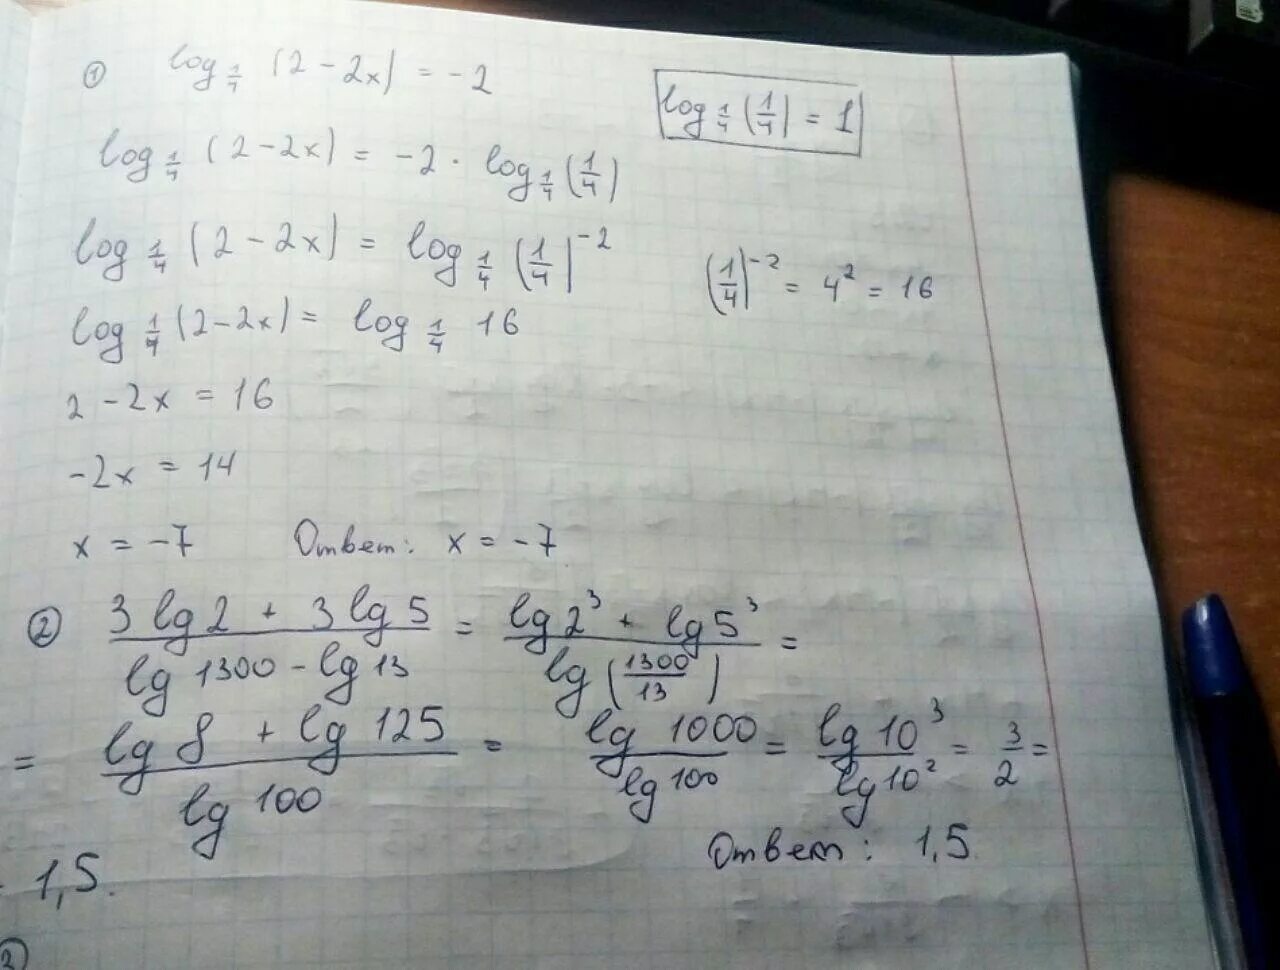 ① log_{1/4} (2 - 2x) = -2
log_{1/4} (1/4) = 1
log_{1/4} (2 - 2x) = -2 · log_{1/4} (1/4)
log_{1/4} (2 - 2x) = log_{1/4} (1/4)^{-2}
(1/4)^{-2} = 4² = 16
log_{1/4} (2 - 2x) = log_{1/4} 16
2 - 2x = 16
-2x = 14
x = -7 Ответ: x = -7
② (3 lg 2 + 3 lg 5)/(lg 1300 - lg 13) = (lg 2³ + lg 5³)/(lg (1300/13)) =
= (lg 8 + lg 125)/(lg 100) = (lg 1000)/(lg 100) = (lg 10³)/(lg 10²) = 3/2 =
Ответ: 1,5.
1,5.